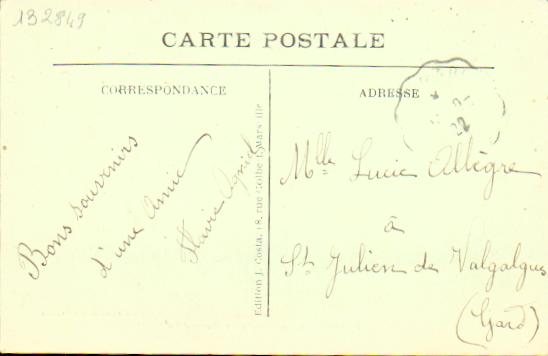 132849
CARTE POSTALE
CORRESPONDANCE
ADRESSE
Bons souvenirs
d'une Amie
Edition J. Costa, 18, rue Colbert, Marseille
Mlle Lucie Allègre
à
St Julien de Valgalgues
(Gard)
22